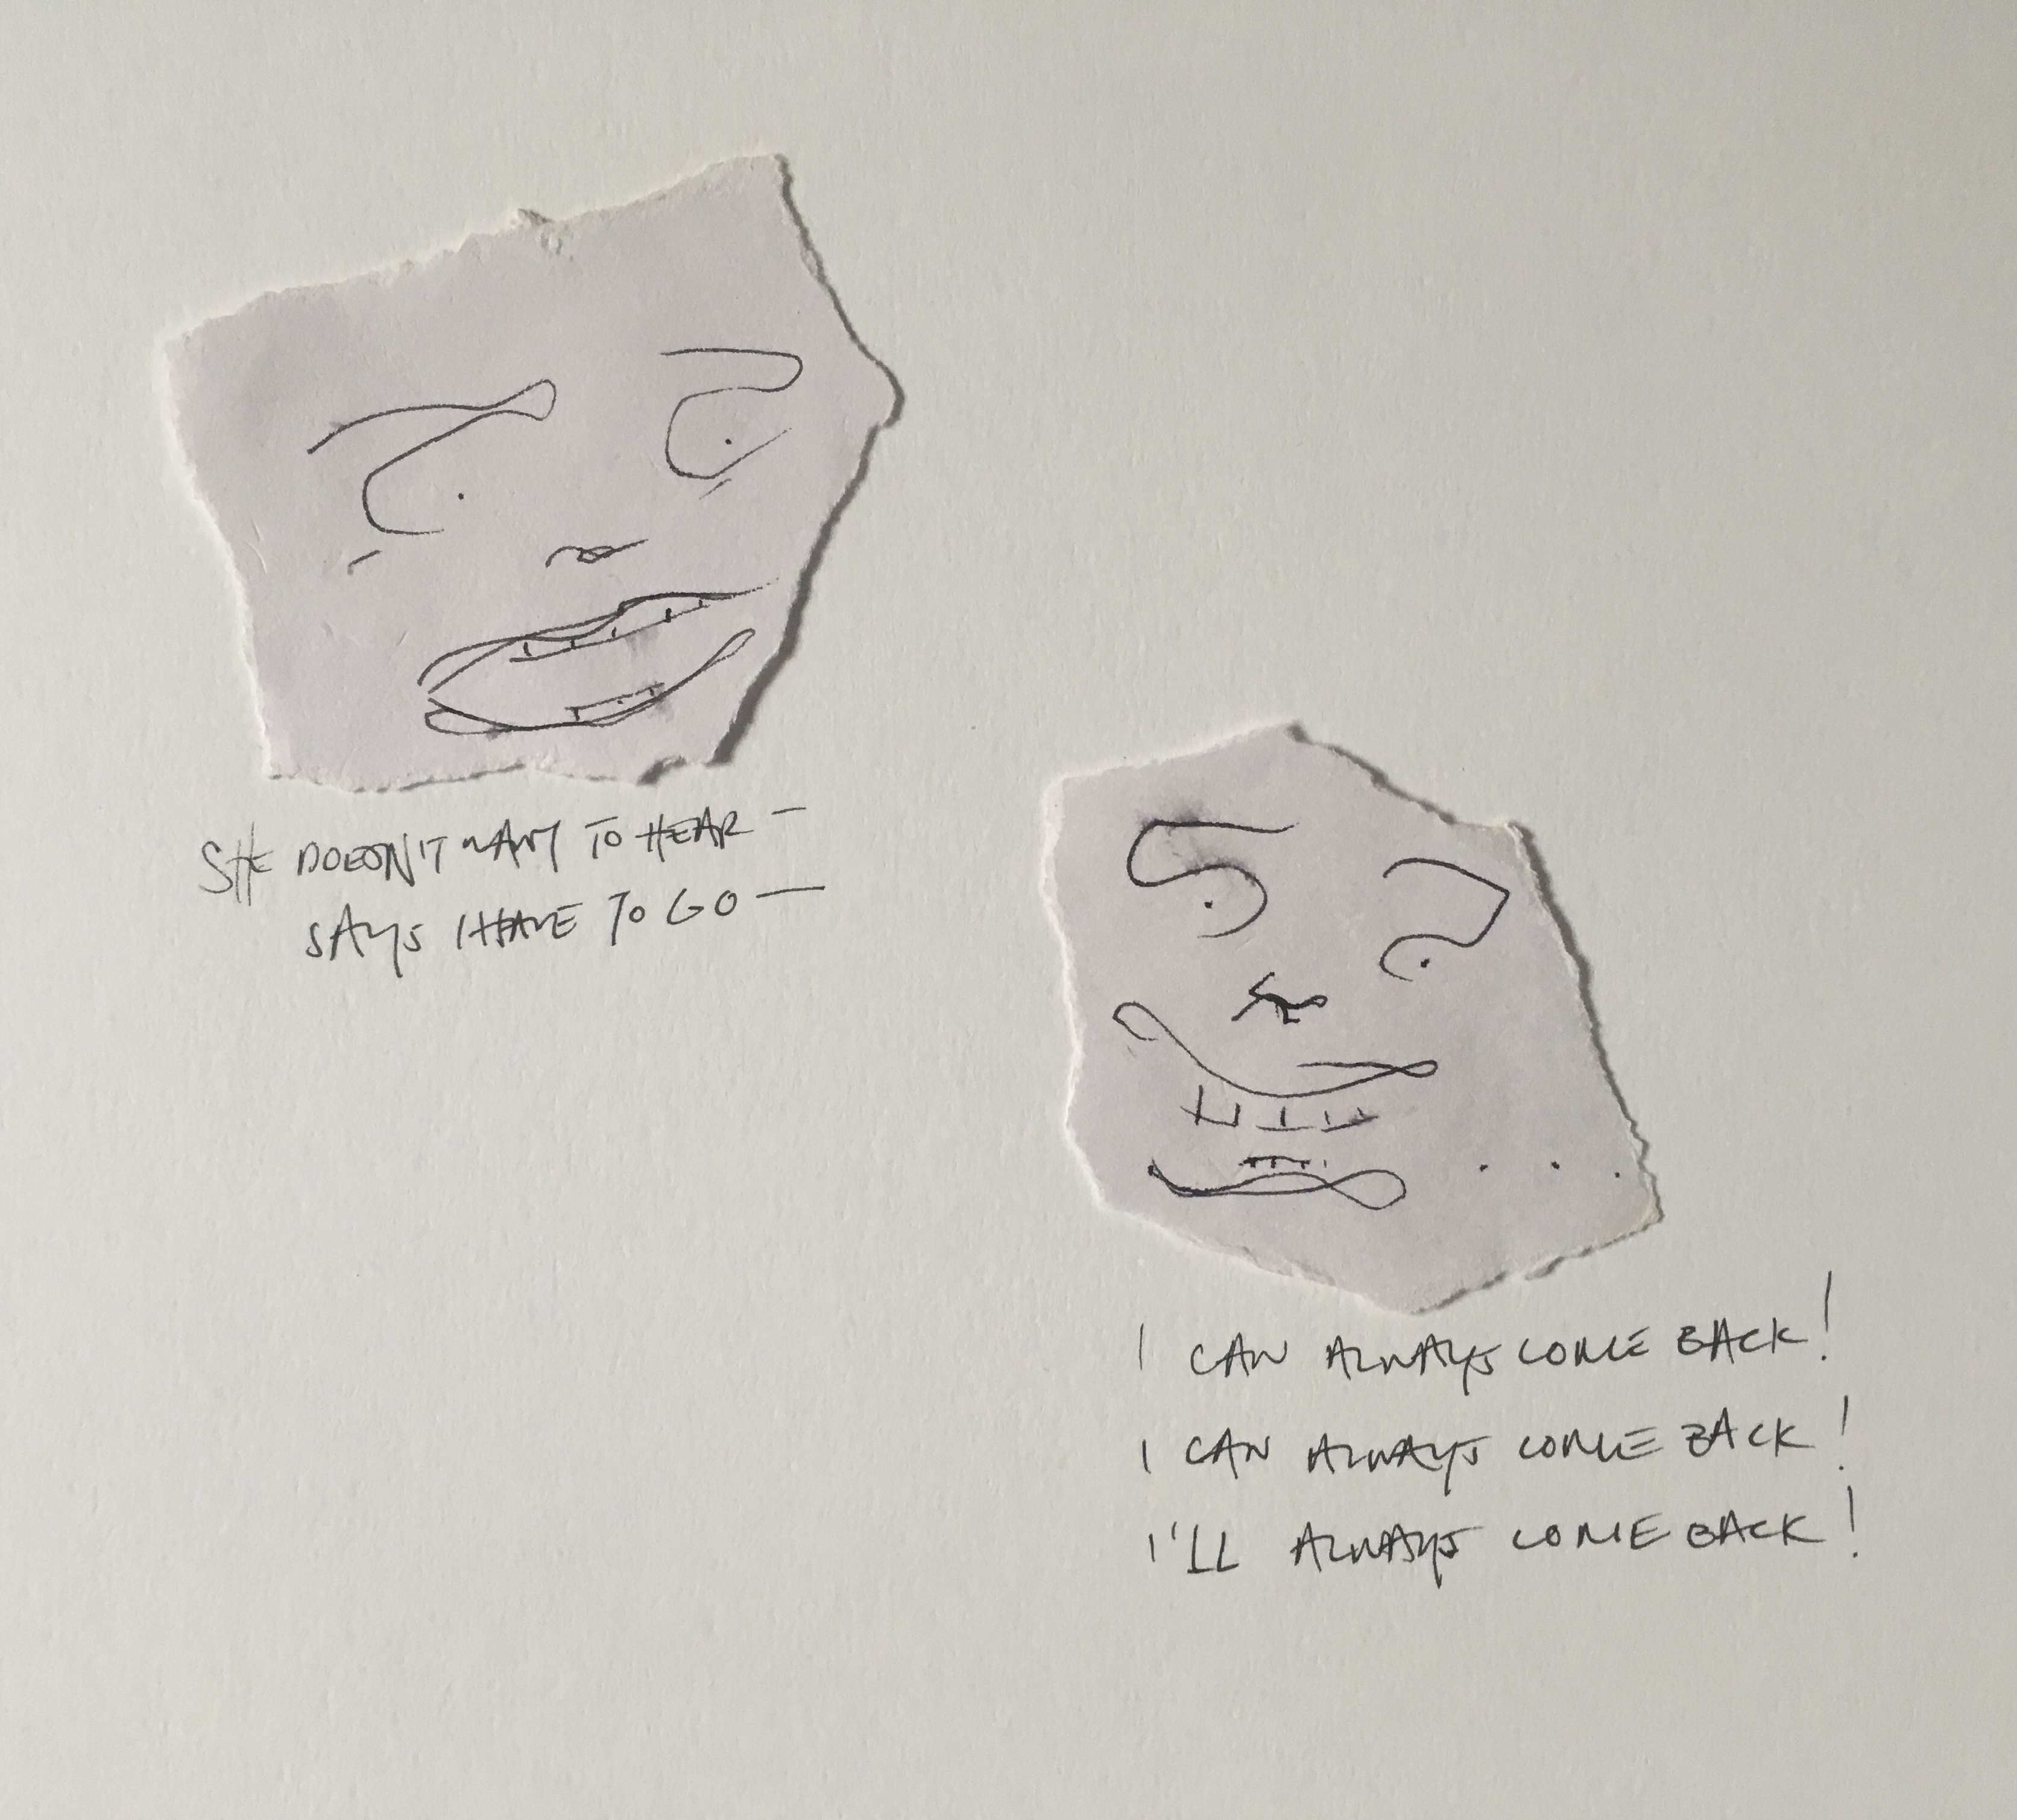 SHE DOESN'T WANT TO HEAR —
SAYS I HAVE TO GO —
I CAN ALWAYS COME BACK!
I CAN ALWAYS COME BACK!
I'LL ALWAYS COME BACK!